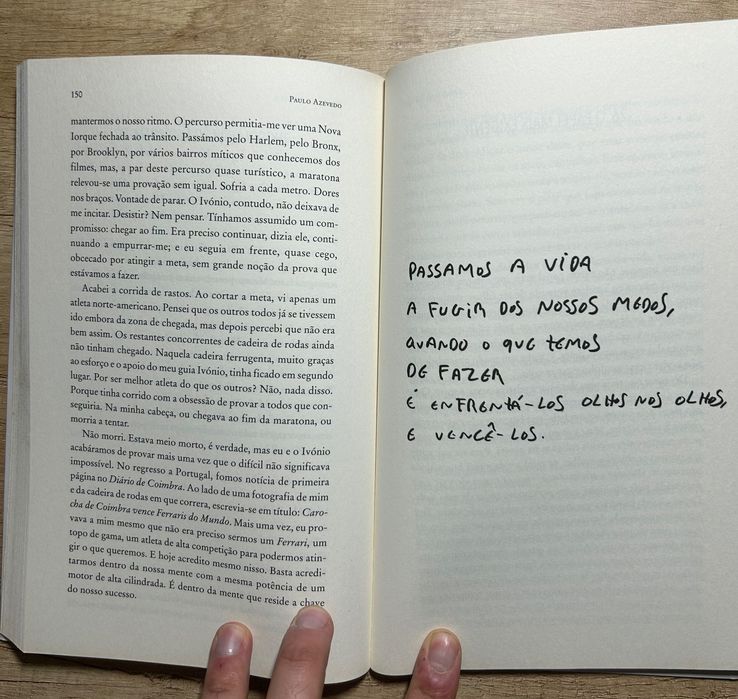 150
PAULO AZEVEDO
mantermos o nosso ritmo. O percurso permitia-me ver uma Nova
Iorque fechada ao trânsito. Passámos pelo Harlem, pelo Bronx,
por Brooklyn, por vários bairros míticos que conhecemos dos
filmes, mas, a par deste percurso quase turístico, a maratona
relevou-se uma provação sem igual. Sofria a cada metro. Dores
nos braços. Vontade de parar. O Ivónio, contudo, não deixava de
me incitar. Desistir? Nem pensar. Tínhamos assumido um com-
promisso: chegar ao fim. Era preciso continuar, dizia ele, conti-
nuando a empurrar-me; e eu seguia em frente, quase cego,
obcecado por atingir a meta, sem grande noção da prova que
estávamos a fazer.
Acabei a corrida de rastos. Ao cortar a meta, vi apenas um
atleta norte-americano. Pensei que os outros todos já se tivessem
ido embora da zona de chegada, mas depois percebi que não era
bem assim. Os restantes concorrentes de cadeira de rodas ainda
não tinham chegado. Naquela cadeira ferrugenta, muito graças
ao esforço e o apoio do meu guia Ivónio, tinha ficado em segundo
lugar. Por ser melhor atleta do que os outros? Não, nada disso.
Porque tinha corrido com a obsessão de provar a todos que con-
seguiria. Na minha cabeça, ou chegava ao fim da maratona, ou
morria a tentar.
Não morri. Estava meio morto, é verdade, mas eu e o Ivónio
acabáramos de provar mais uma vez que o difícil não significava
impossível. No regresso a Portugal, fomos notícia de primeira
página no Diário de Coimbra. Ao lado de uma fotografia de mim
e da cadeira de rodas em que correra, escrevia-se em título: Caro-
cha de Coimbra vence Ferraris do Mundo. Mais uma vez, eu pro-
vava a mim mesmo que não era preciso sermos um Ferrari, um
topo de gama, um atleta de alta competição para podermos atin-
gir o que queremos. E hoje acredito mesmo nisso. Basta acredi-
tarmos dentro da nossa mente com a mesma potência de um
motor de alta cilindrada. É dentro da mente que reside a chave
do nosso sucesso.
PASSAMOS A VIDA
A FUGIR DOS NOSSOS MEDOS,
QUANDO O QUE TEMOS
DE FAZER
É ENFRENTÁ-LOS OLHOS NOS OLHOS,
E VENCÊ-LOS.